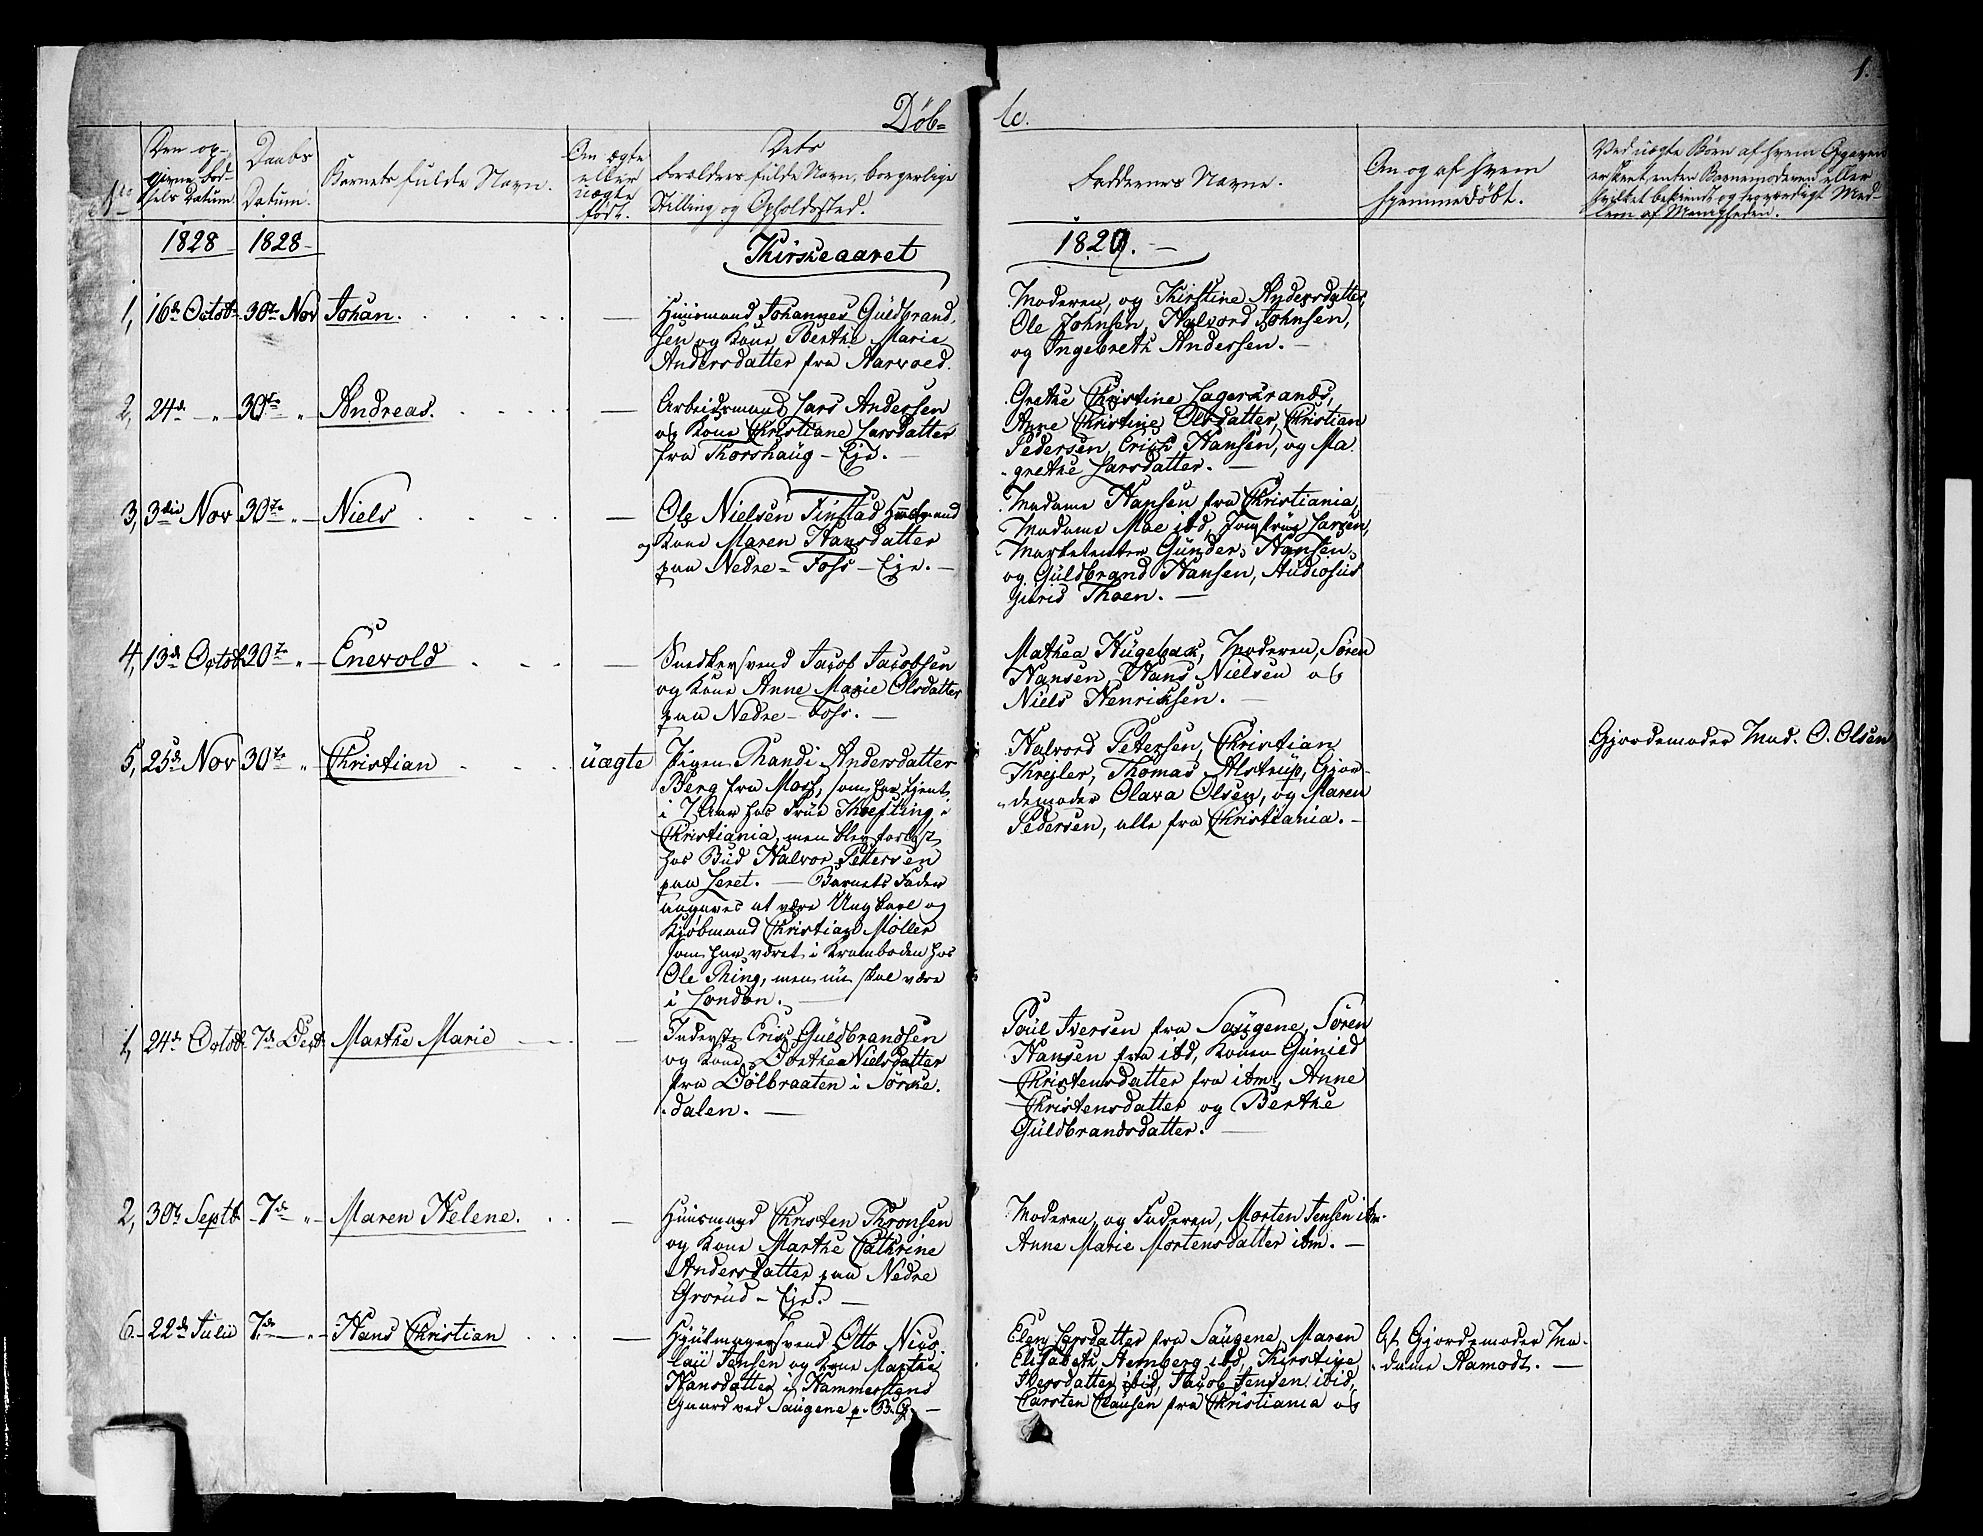 1.
Døb= te.
No
Den op-
givne Fød-
sels Datum.
Daabs
Datum.
Barnets fulde Navn.
Om ægte
eller
uægte
født.
Dets
Forældres fulde Navn, borgerlige
Stilling og Opholdssted.
Faddernes Navne.
Om og af hvem
hjemmedøbt.
Ved uægte Børn af hvem Opgaven
er skeet, enten Barnemoderen eller
hvilket bekiendt og troværdigt Med-
lem af Menigheden.
1828 1828 Kirkeaaret 1829.
1, 16de Octobr 30te Nov Johan. —
Huusmand Johannes Güldbrand
sen og Kone Berthe Marie
Andersdatter fra Aarvold.
Moderen, og Kirstine Andersdatter,
Ole Johnsen, Halvord Johnsen,
og Ingebreth Andersen. —
2, 24de — " 30te " Andreas. —
Arbeidsmand Lars Andersen
og Kone Christiane Larsdatter
fra Thorshaug - Eje. —
Grethe Christine Lagerstrands,
Anne Christine Olsdatter, Christian
Pedersen, Erich Hansen, og Ma
grethe Larsdatter. —
3, 3die Nov 30te " — Niels —
Ole Nielsen Finstad Huusmand
og Kone Maren Hansdatter
paa Nedre - Foss - Eje. —
Madame Hansen fra Christiania,
Madame Moe ibd, Jomfrue Larsen,
Marketenter Gunder Hansen
og Güldbrand Hansen,
Thoen. —
4, 13de Octobr 30te " — Enevold —
Snedkersvend Jacob Jacobsen
og Kone Anne Marie Olsdatter
paa Nedre - Foss. —
Mathea Hügebak, Moderen, Søren
Hansen, Hans Nielsen og
Niels Henriksen. —
5, 25de Nov 30te " Christian uægte
Pigen Randi Andersdatter
Berg fra Moss, som har tjent
i 7 Aar hos Frue Thoefting, i
Christiania, men blev forløst
hos Bud Halvor Petersen
paa Leret. — Barnets Fader
angaves at være Ungkarl og
Kjøbmand Christian Møller
som har været i Kramboden hos
Ole Ring, men nu skal være
i London. —
Halvord Petersen, Christian
Krejler, Thomas Alstrup, Gjor-
demoder Olava Olsen, og Maren
Pedersen, alle fra Christiania. —
Gjordemoder Mad. O. Olsen
1, 24de Octobr 7de Decb Marthe Marie —
Inderste Erich Güldbrandsen
og Kone Dorthea Nielsdatter
fra Bølbraaten i Sørke
dalen. —
Poul Iversen fra Saugene, Søren
Hansen fra ibd, Konen Gunild
Christensdatter fra itm, Anne
Christensdatter og Berthe
Güldbrandsdatter. —
2, 30te Septbr 7de " — Maren Helene. —
Huusmand Christen Thronsen
og Kone Marthe Cathrine
Andersdatter paa Nedre
Grorud - Eje. —
Moderen, og Faderen, Morten Jensen itm.
Anne Marie Mortensdatter itm. —
6 22de Julii 7de " Hans Christian —
Hjulmagersvend Otto Nico
lai Jensen og Kone Marthe
Hansdatter i Hammerstens
Gaard ved Saugene p. B. G. —
Elen Larsdatter fra Saugene, Maren
Elisabeth Hemberg ibd, Kirstine
Iversdatter ibid, Jacob Jensen ibid,
Carsten Clausen fra Christiania og
Af Gjordemoder Ma-
dame Aamodt. —